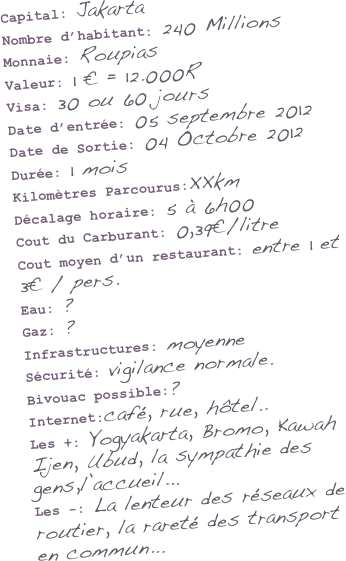 Capital: Jakarta
Nombre d'habitant: 240 Millions
Monnaie: Roupias
Valeur: 1 € = 12.000R
Visa: 30 ou 60 jours
Date d'entrée: 05 septembre 2012
Date de Sortie: 04 Octobre 2012
Durée: 1 mois
Kilomètres Parcourus:XXkm
Décalage horaire: 5 à 6h00
Cout du Carburant: 0,39€/litre
Cout moyen d'un restaurant: entre 1 et
3€ / pers.
Eau: ?
Gaz: ?
Infrastructures: moyenne
Sécurité: vigilance normale.
Bivouac possible:?
Internet:café, rue, hôtel..
Les +: Yogyakarta, Bromo, Kawah
Ijen, Ubud, la sympathie des
gens,l'accueil...
Les -: La lenteur des réseaux de
routier, la rareté des transport
en commun...